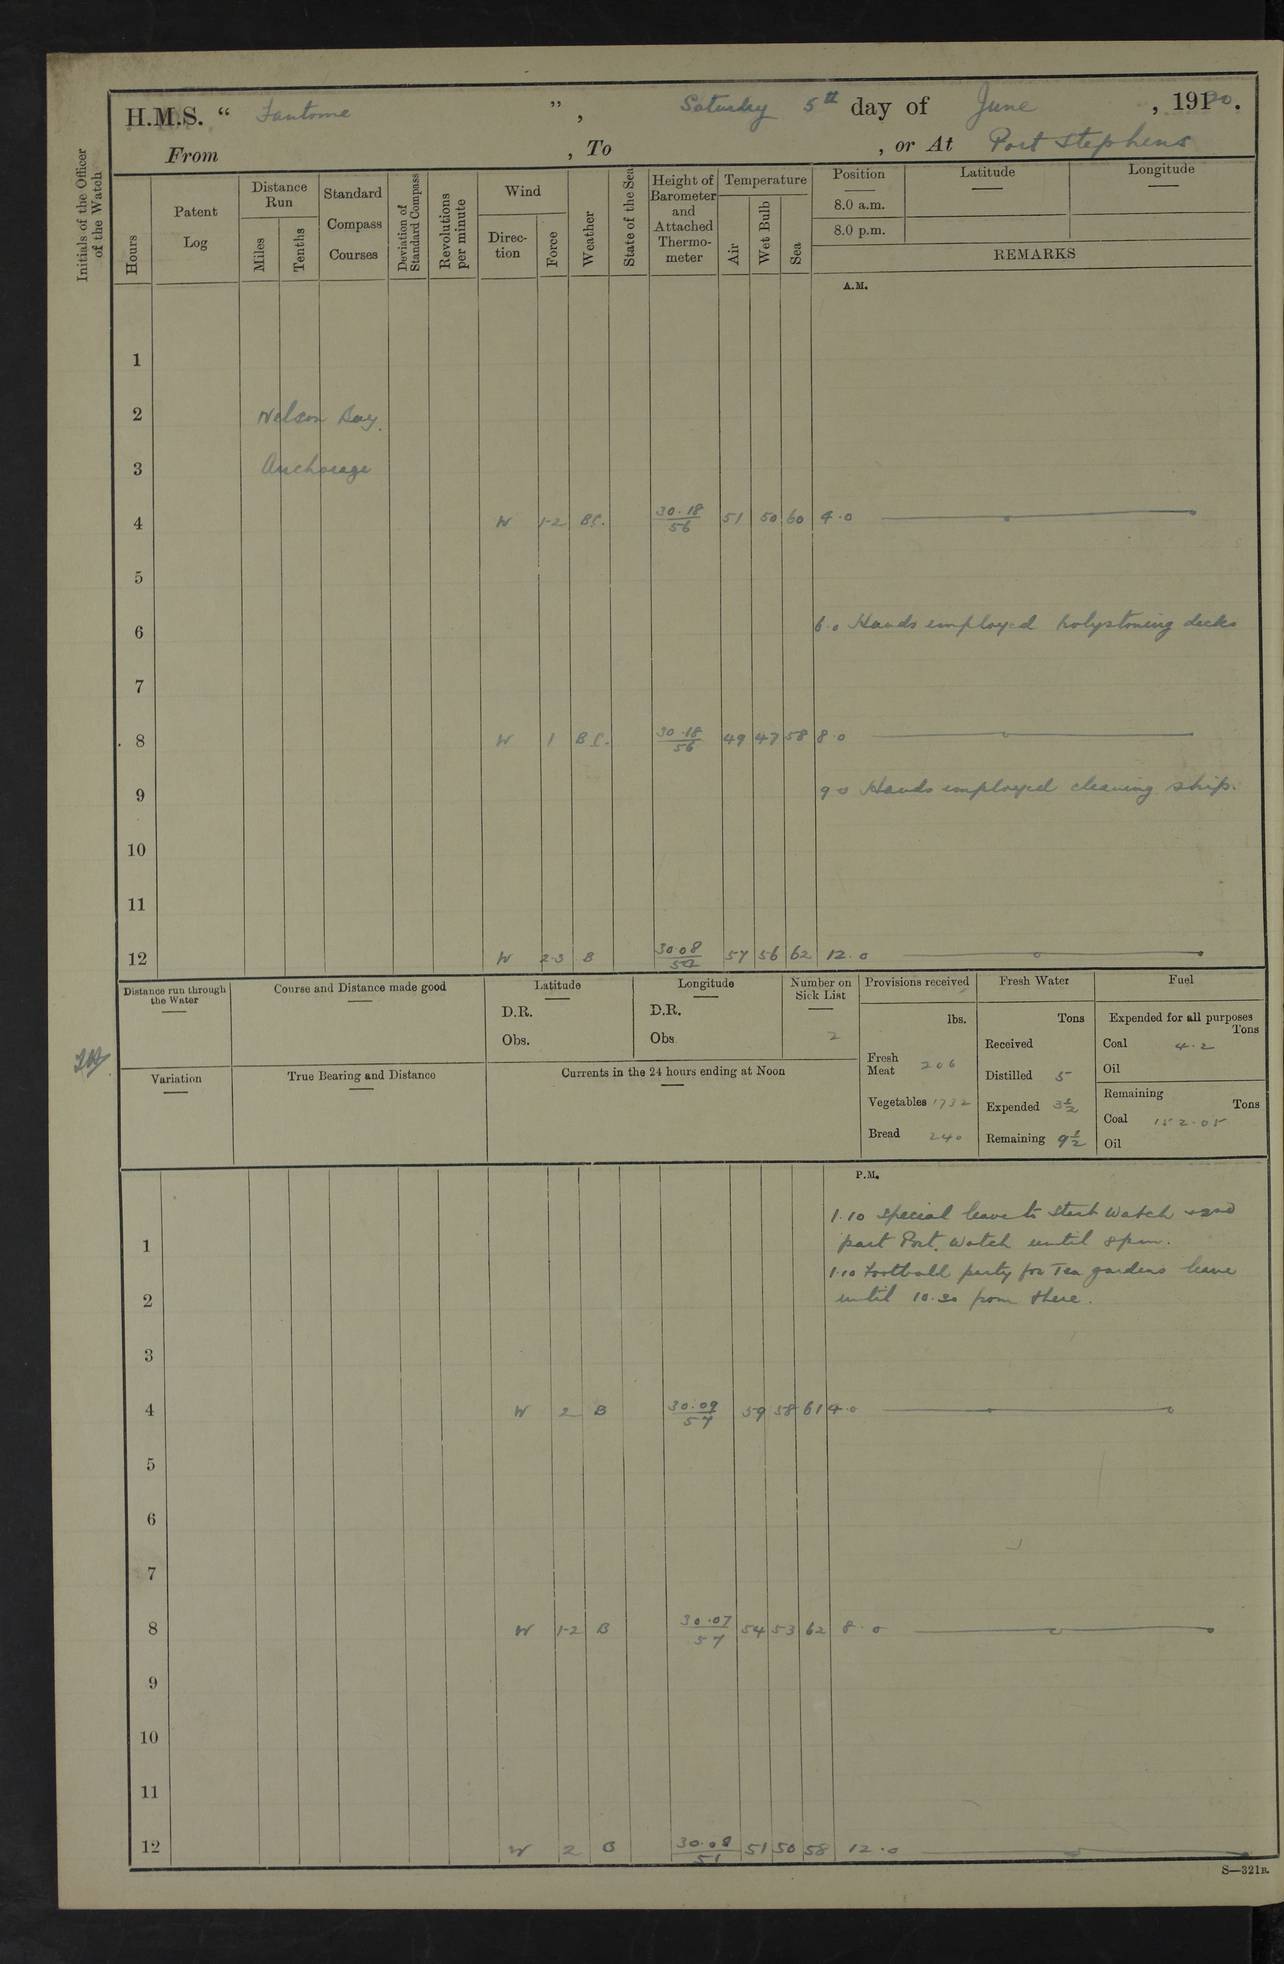 H.M.S. “ Fantome ”, Saturday 5th day of June, 1920.
From , To , or At Port Stephens
Initials of the Officer of the Watch
Hours
Patent Log
Distance Run
Miles
Tenths
Standard Compass Courses
Deviation of Standard Compass
Revolutions per minute
Wind
Direction
Force
Weather
State of the Sea
Height of Barometer and Attached Thermometer
Temperature
Air
Wet Bulb
Sea
Position
8.0 a.m.
8.0 p.m.
Latitude
Longitude
REMARKS
A.M.
1
2 Nelson Bay.
3 Anchorage
4 W 1-2 BC. 30.18 56 51 50 60 4.0
5
6 6.0 Hands employed holystoning decks
7
8 W 1 BC. 30.18 56 49 47 58 8.0
9 9.0 Hands employed cleaning ship.
10
11
12 W 2-3 B 30.08 57 56 62 12.0
Distance run through the Water
Course and Distance made good
Latitude
D.R.
Obs.
Longitude
D.R.
Obs
Number on Sick List
2
Provisions received
lbs.
Fresh Meat 206
Vegetables 1732
Bread 240
Fresh Water
Tons
Received
Distilled 5
Expended 3½
Remaining 9½
Fuel
Expended for all purposes
Tons
Coal 4.2
Oil
Remaining
Tons
Coal 152.05
Oil
Variation
True Bearing and Distance
Currents in the 24 hours ending at Noon
P.M.
1.10 Special leave to Starb Watch & 2nd
1 part Port. Watch until 8 pm.
1.10 Football party for Tea gardens leave
2 until 10.30 from there.
3
4 W 2 B 30.09 57 59 58 61 4.0
5
6
7
8 W 1-2 B 30.07 57 54 53 62 8.0
9
10
11
12 W 2 B 30.08 51 51 50 58 12.0
S—321B.